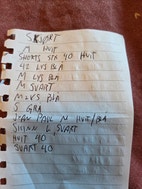 SKJORT
M HVIT
SHORTS STR 40 HVIT
42 LYS BLÅ
M LYS BLÅ
M SVART
M LYS BLÅ
S GRÅ
JEAN PAUL M HVIT/BLÅ
SKINN L SVART
HVIT 40
SVART 40